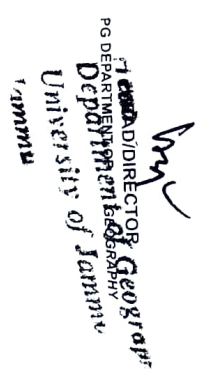 AD/DIRECTOR
PG DEPARTMENT OF GEOGRAPHY
Department of Geograp
University of Jammu